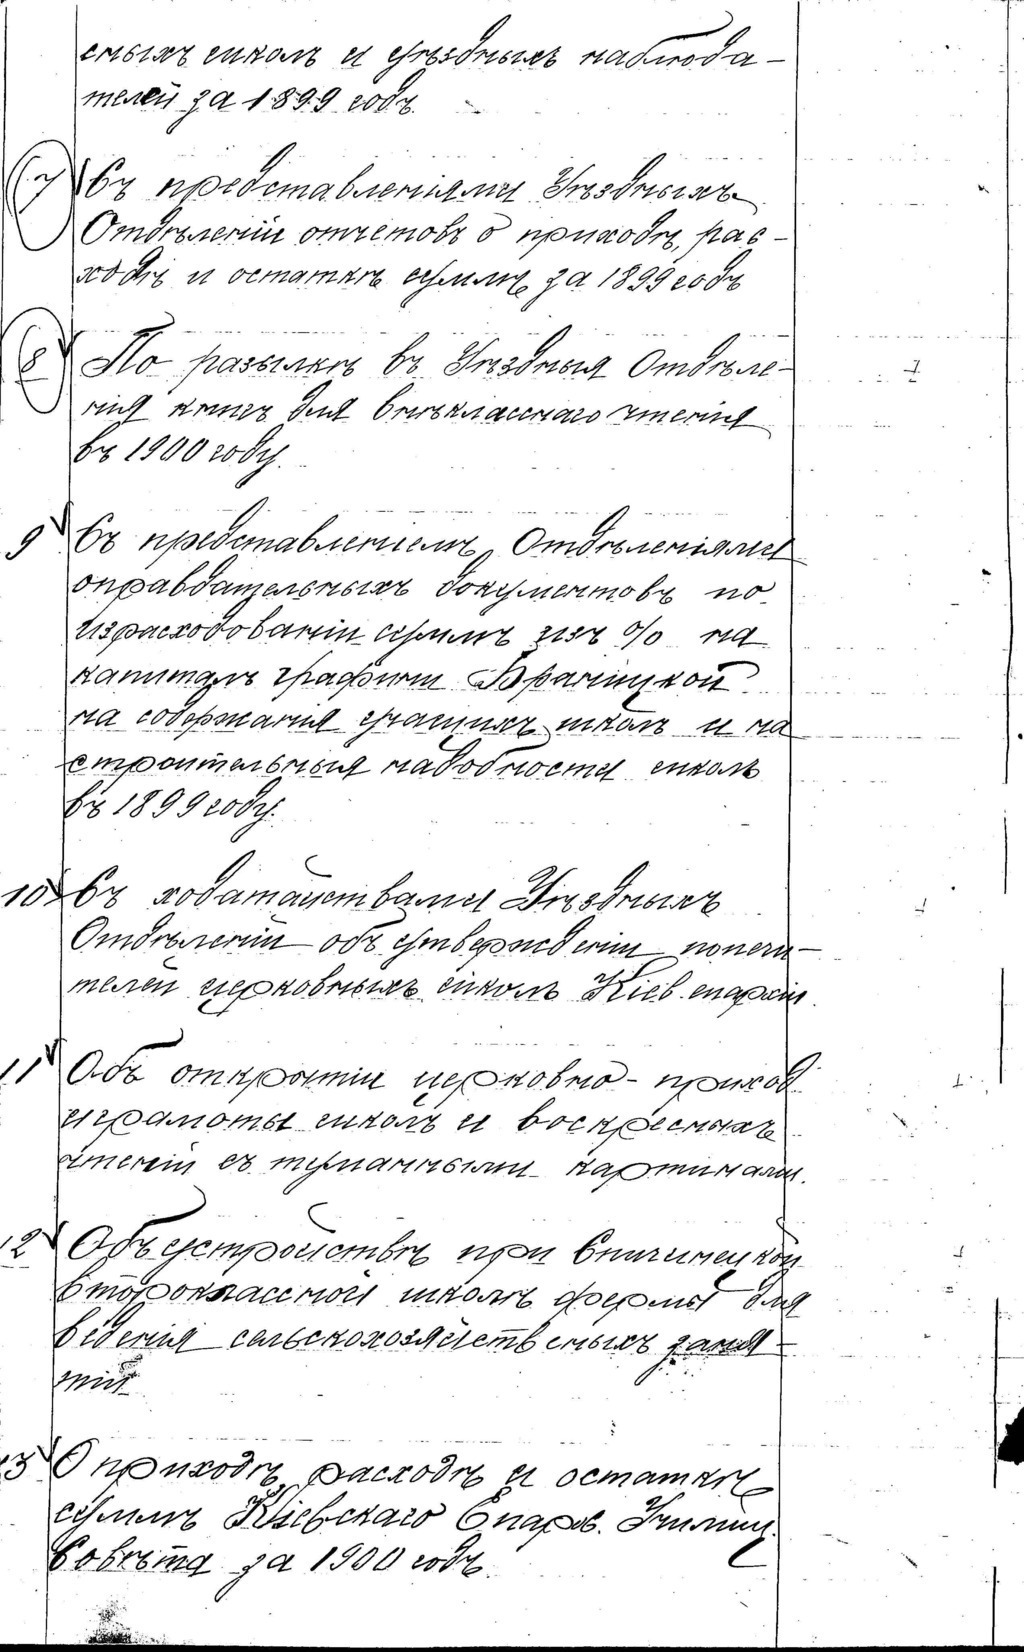 сныхъ школъ и уѣздныхъ наблюда-
телей за 1899 годъ.
7 Съ представленіями Уѣздныхъ
Отдѣленій отчетовъ о приходѣ, рас-
ходѣ и остаткѣ суммъ за 1899 годъ
8 По разсылкѣ въ Уѣздныя Отдѣле-
нія книгъ для внѣкласснаго чтенія
въ 1900 году.
9 Съ представленіемъ Отдѣленіями
оправдательныхъ документовъ по
израсходованіи суммъ изъ % на
капиталъ графини Браницкой
на содержанія учащихъ школъ и на
строительныя надобности школъ
въ 1899 году.
10 Съ ходатайствами Уѣздныхъ
Отдѣленій объ утвержденіи попечи-
телей церковныхъ школъ Кіев. епархіи.
11 Объ открытіи церковно-приход.
и грамоты школъ и воскресныхъ
чтеній съ туманными картинами.
12 Объ устройствѣ при
второклассной школѣ фермы для
веденія сельскохозяйственыхъ заня-
тій
13 О приходѣ, расходѣ и остаткѣ
суммъ Кіевскаго Епарх. Училищ.
Совѣта за 1900 годъ.